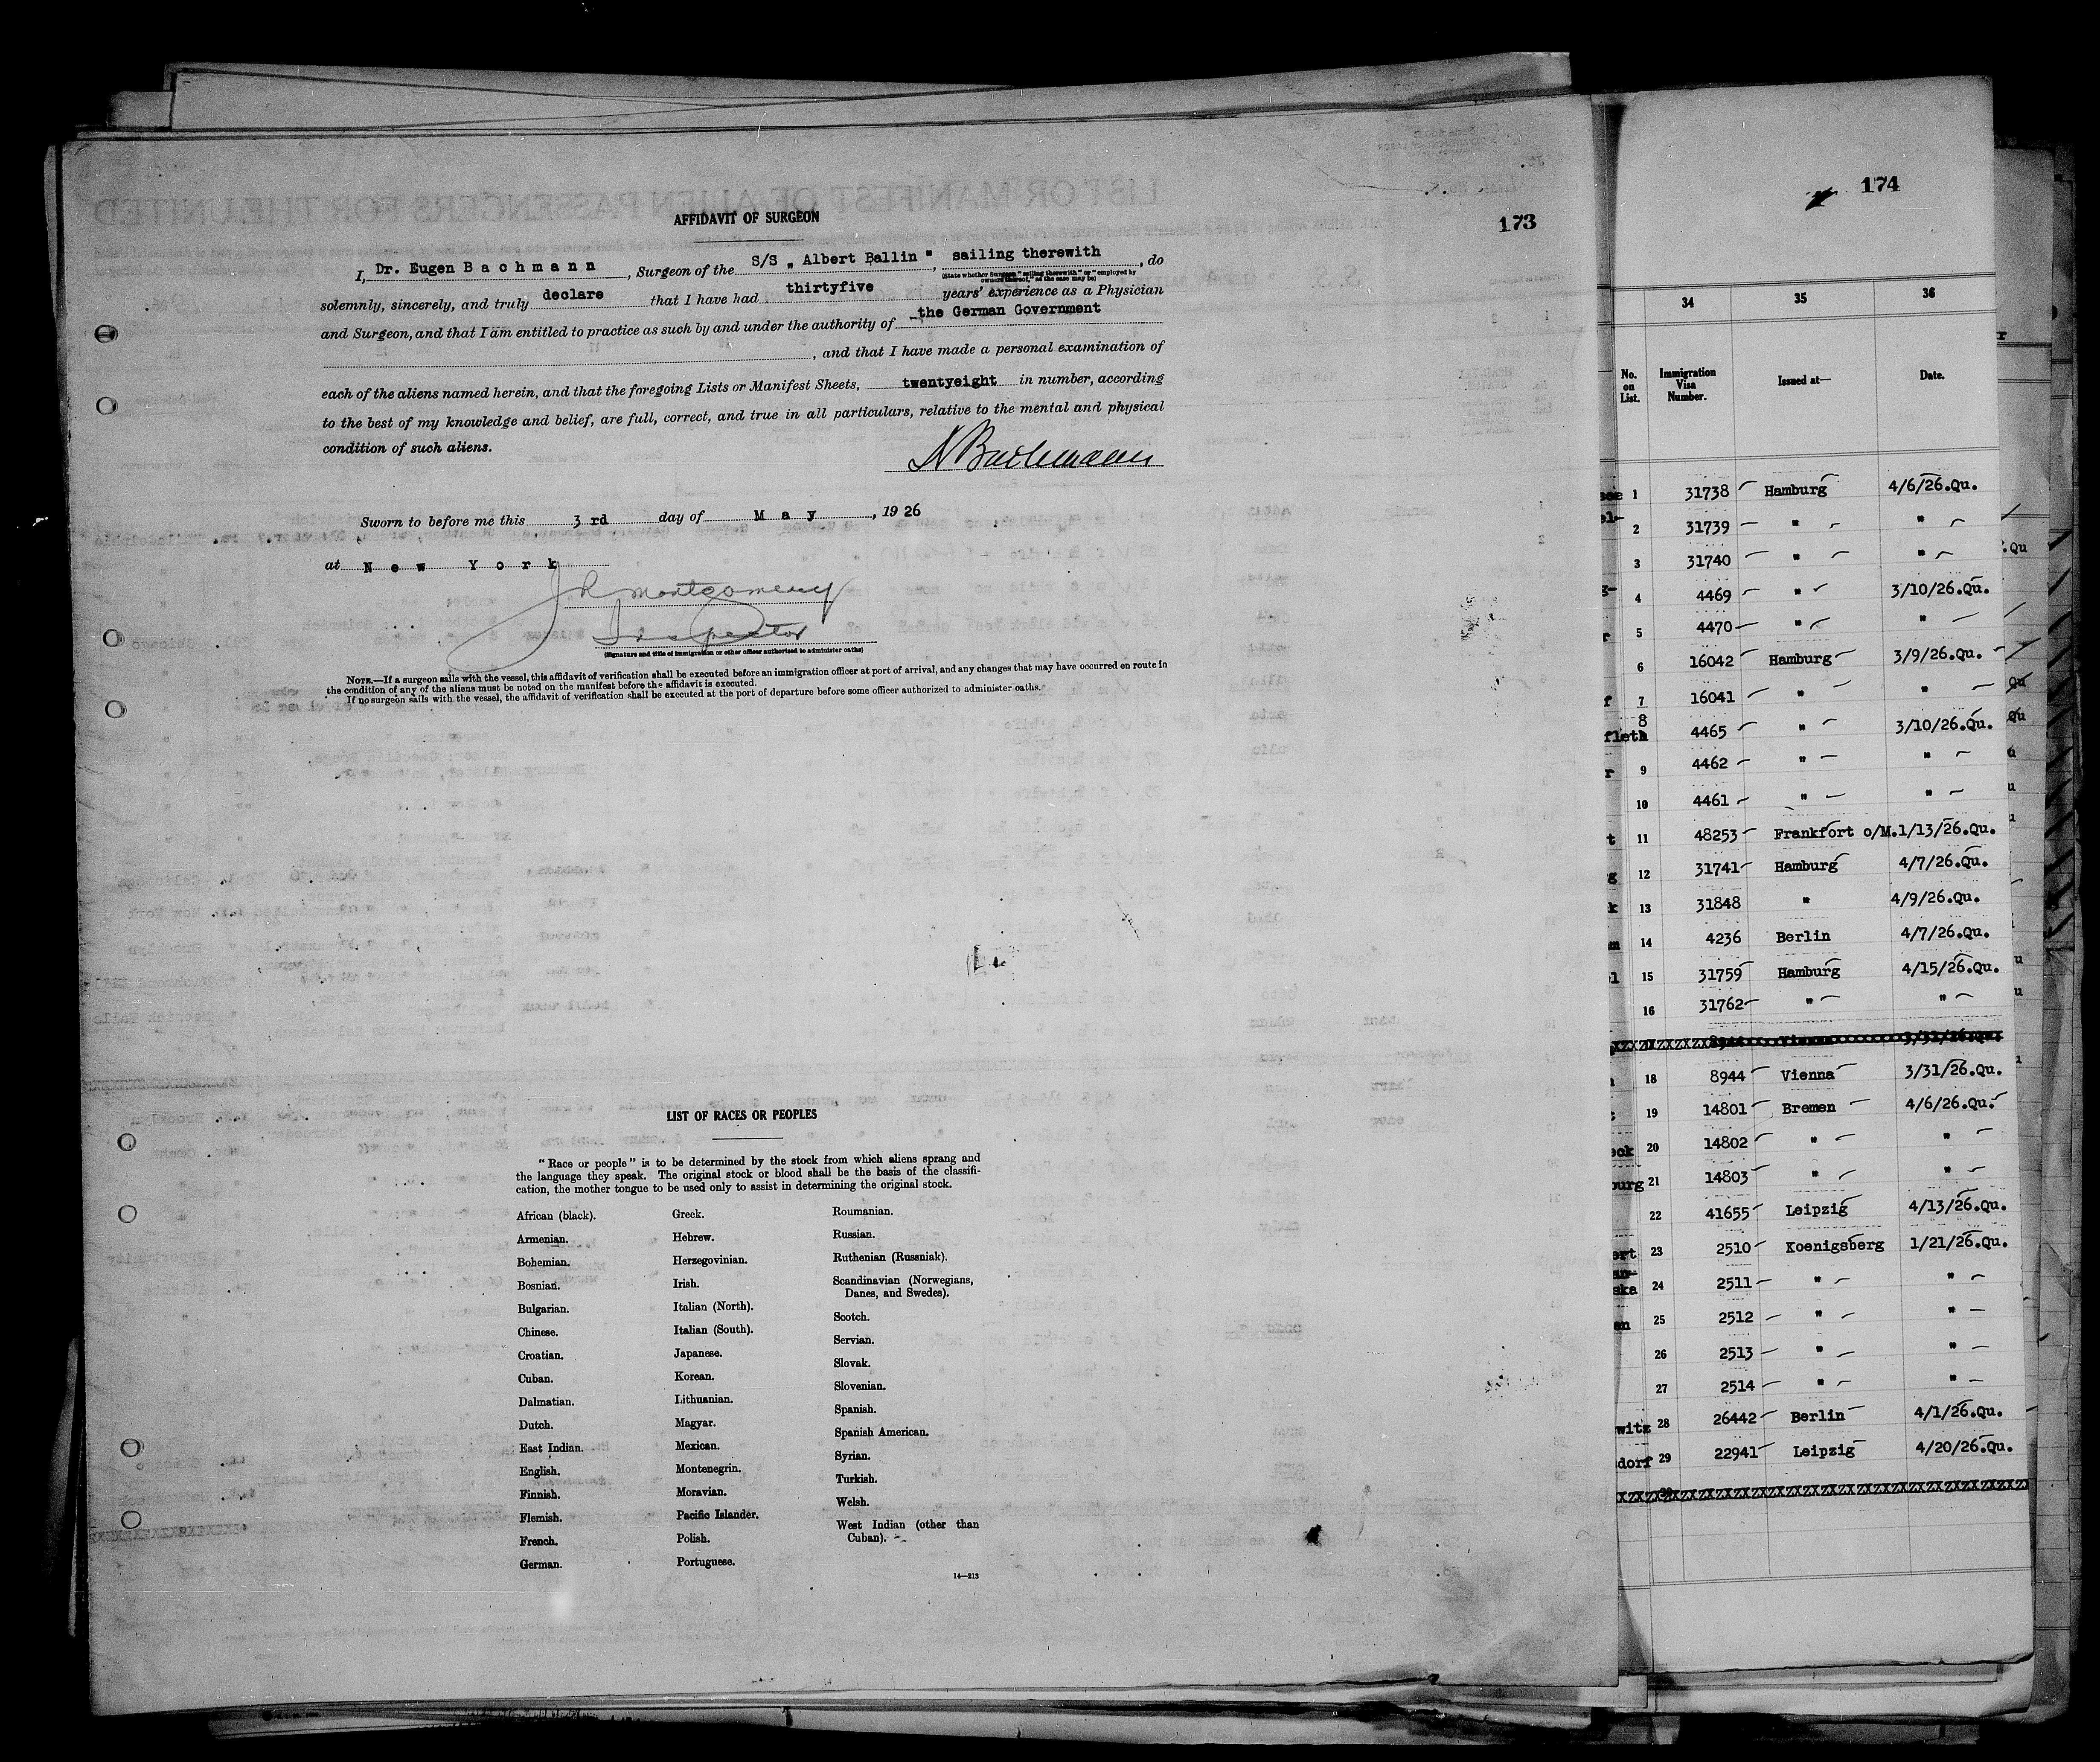 173
AFFIDAVIT OF SURGEON
I, Dr. Eugen B a c h m a n n , Surgeon of the S/S „ Albert Ballin " , sailing therewith , do
(State whether Surgeon "sailing therewith" or "employed by
owners thereof," as the case may be)
solemnly, sincerely, and truly declare that I have had thirtyfive years' experience as a Physician
and Surgeon, and that I am entitled to practice as such by and under the authority of the German Government
, and that I have made a personal examination of
each of the aliens named herein, and that the foregoing Lists or Manifest Sheets, twentyeight in number, according
to the best of my knowledge and belief, are full, correct, and true in all particulars, relative to the mental and physical
condition of such aliens.
Bachmann
Sworn to before me this 3 rd day of M a y , 19 26
at N e w Y o r k
Montgomery
Inspector
(Signature and title of immigration or other officer authorized to administer oaths)
NOTE.—If a surgeon sails with the vessel, this affidavit of verification shall be executed before an immigration officer at port of arrival, and any changes that may have occurred en route in
the condition of any of the aliens must be noted on the manifest before the affidavit is executed.
If no surgeon sails with the vessel, the affidavit of verification shall be executed at the port of departure before some officer authorized to administer oaths.
LIST OF RACES OR PEOPLES
"Race or people" is to be determined by the stock from which aliens sprang and
the language they speak. The original stock or blood shall be the basis of the classifi-
cation, the mother tongue to be used only to assist in determining the original stock.
African (black).
Armenian.
Bohemian.
Bosnian.
Bulgarian.
Chinese.
Croatian.
Cuban.
Dalmatian.
Dutch.
East Indian.
English.
Finnish.
Flemish.
French.
German.
Greek.
Hebrew.
Herzegovinian.
Irish.
Italian (North).
Italian (South).
Japanese.
Korean.
Lithuanian.
Magyar.
Mexican.
Montenegrin.
Moravian.
Pacific Islander.
Polish.
Portuguese.
Roumanian.
Russian.
Ruthenian (Russniak).
Scandinavian (Norwegians,
Danes, and Swedes).
Scotch.
Servian.
Slovak.
Slovenian.
Spanish.
Spanish American.
Syrian.
Turkish.
Welsh.
West Indian (other than
Cuban).
14—213
174
34 35 36
No. on List. Immigration Visa Number. Issued at— Date.
1 31738 Hamburg 4/6/26.Qu.
2 31739 " "
3 31740 " "
4 4469 " 3/10/26.Qu.
5 4470 " "
6 16042 Hamburg 3/9/26.Qu.
7 16041 " "
8 4465 " 3/10/26.Qu.
9 4462 " "
10 4461 " "
11 48253 Frankfort o/M. 1/13/26.Qu.
12 31741 Hamburg 4/7/26.Qu.
13 31848 " 4/9/26.Qu.
14 4236 Berlin 4/7/26.Qu.
15 31759 Hamburg 4/15/26.Qu.
16 31762 " "
18 8944 Vienna 3/31/26.Qu.
19 14801 Bremen 4/6/26.Qu.
20 14802 " "
21 14803 " "
22 41655 Leipzig 4/13/26.Qu.
23 2510 Koenigsberg 1/21/26.Qu.
24 2511 " "
25 2512 " "
26 2513 " "
27 2514 " "
28 26442 Berlin 4/1/26.Qu.
29 22941 Leipzig 4/20/26.Qu.